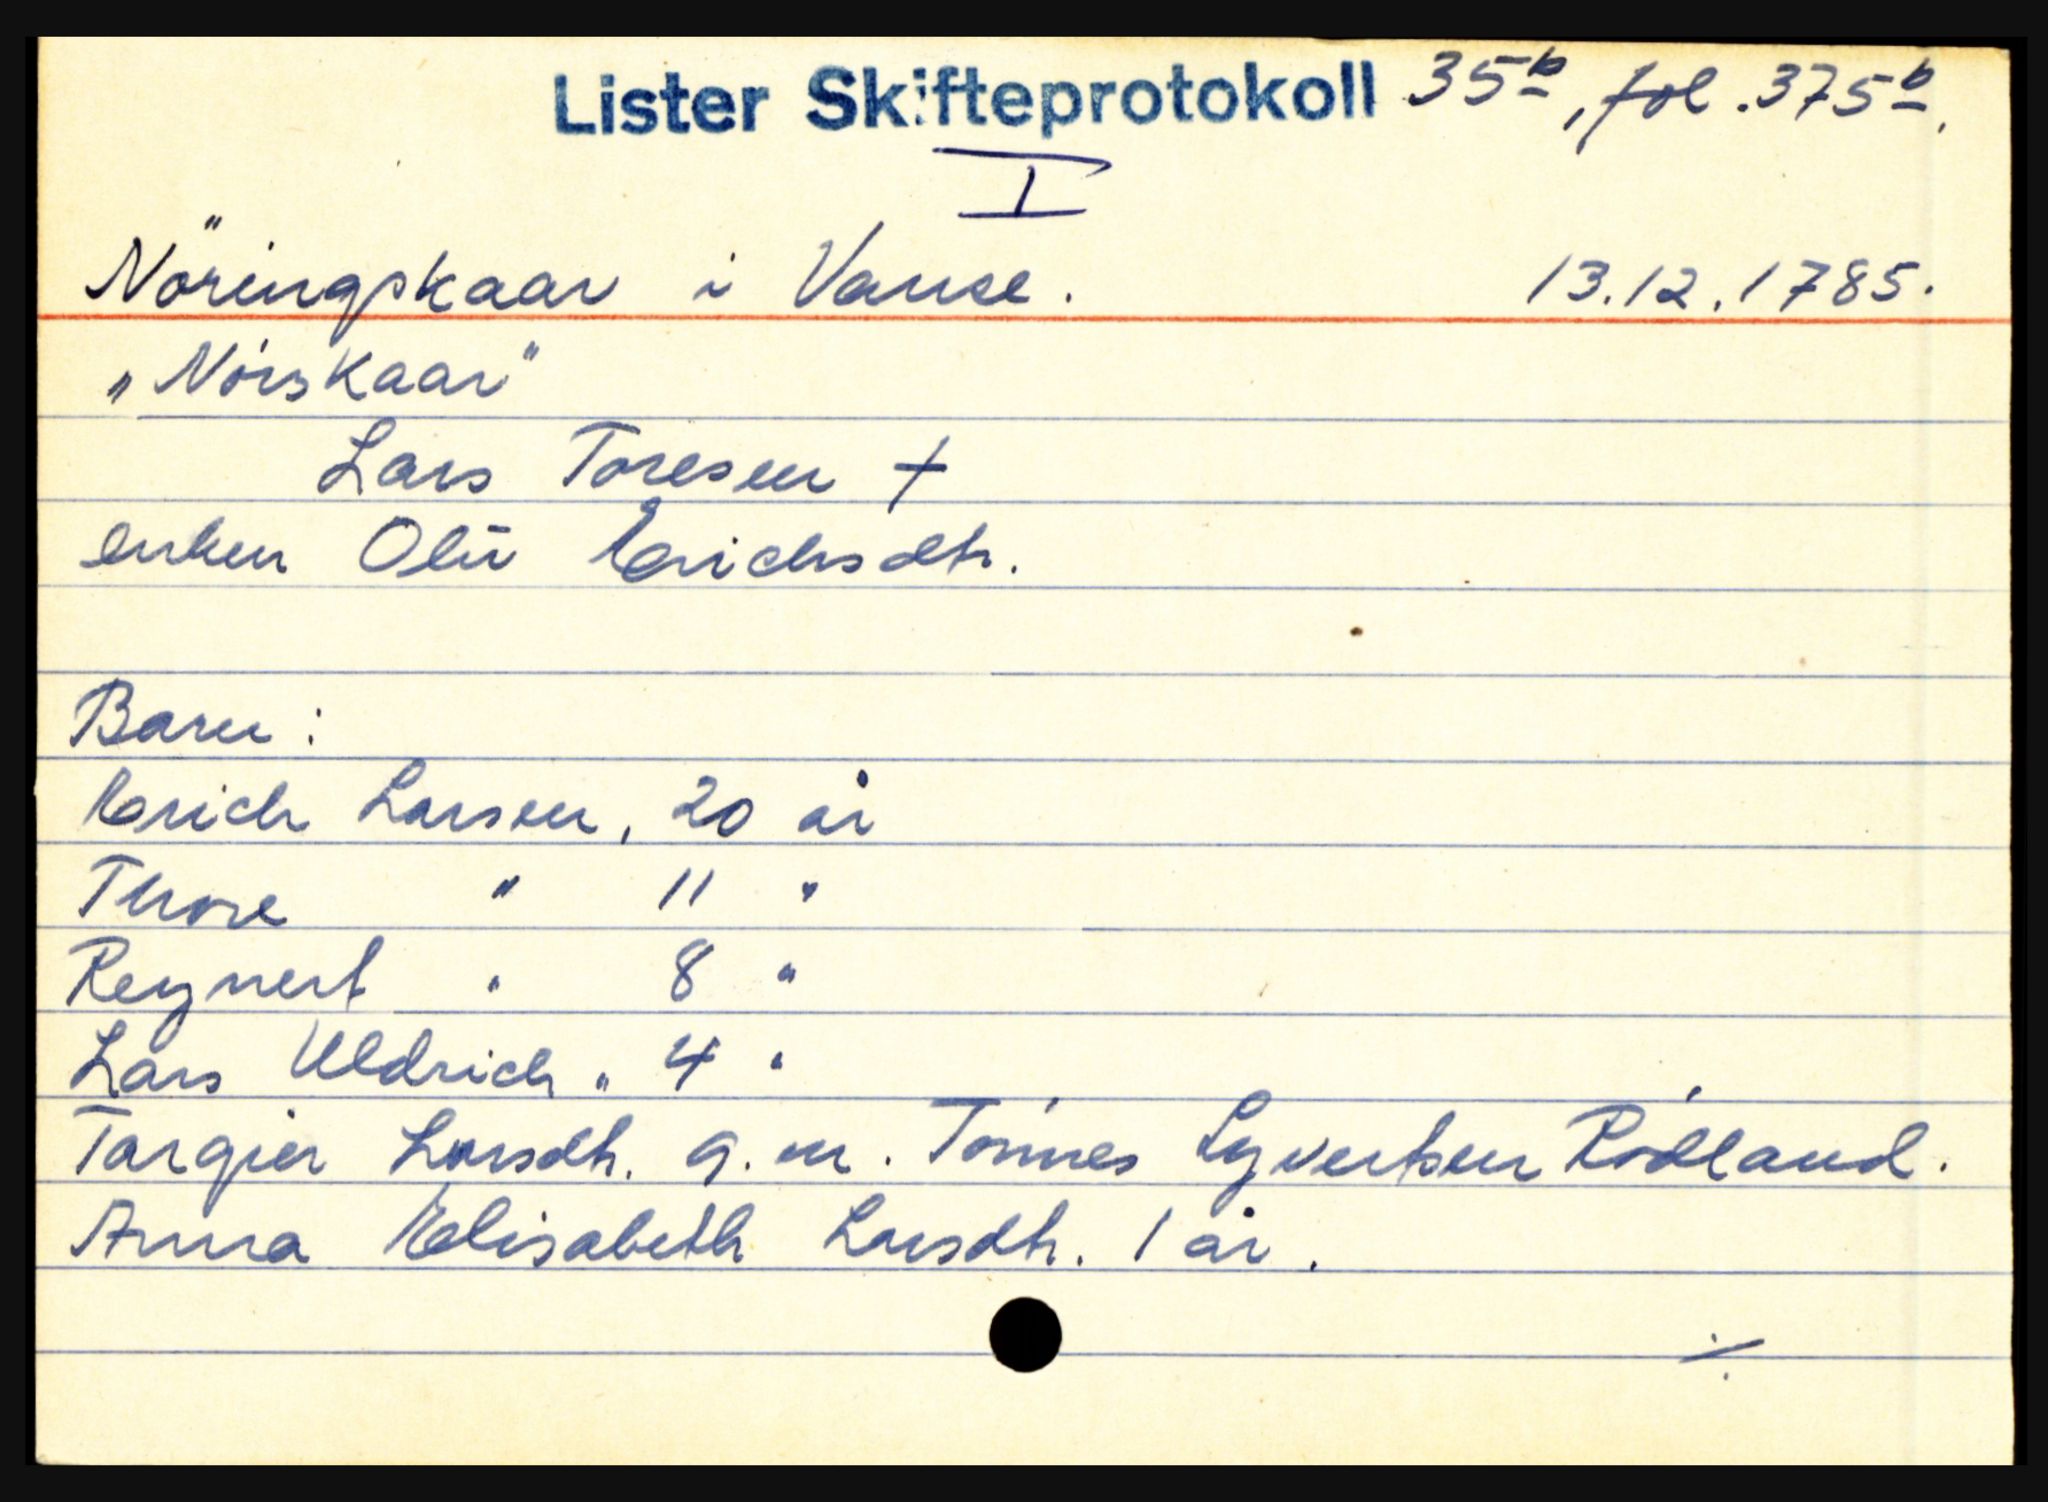 Lister Skifteprotokoll 35b, fol. 375b.
I
Nöringskaar i Vanse. 13.12.1785.
„Nórskaar"
Lars Toresen †
enken Olu Erichsdtr.
Barn:
Erich Larsen, 20 år
Thore " 11 "
Reynert " 8 "
Lars Uldrich " 4 "
Targier Larsdtr. g.m. Tónnes Syvertsen Ródland.
Anna Elisabeth Larsdtr. 1 år.